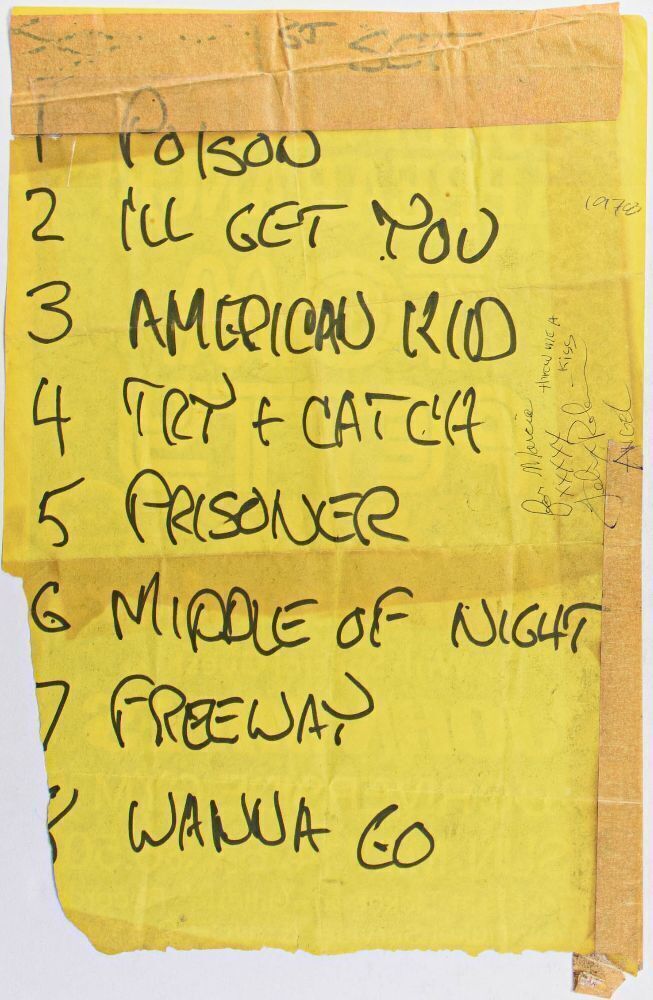 1ST SET
1 POISON
2 I'LL GET YOU
1978
3 AMERICAN KID
4 TRY + CATCH
5 PRISONER
6 MIDDLE OF NIGHT
7 FREEWAY
8 WANNA GO
For Marcia
XXXXX
THROW ME A
KISS
ANGEL